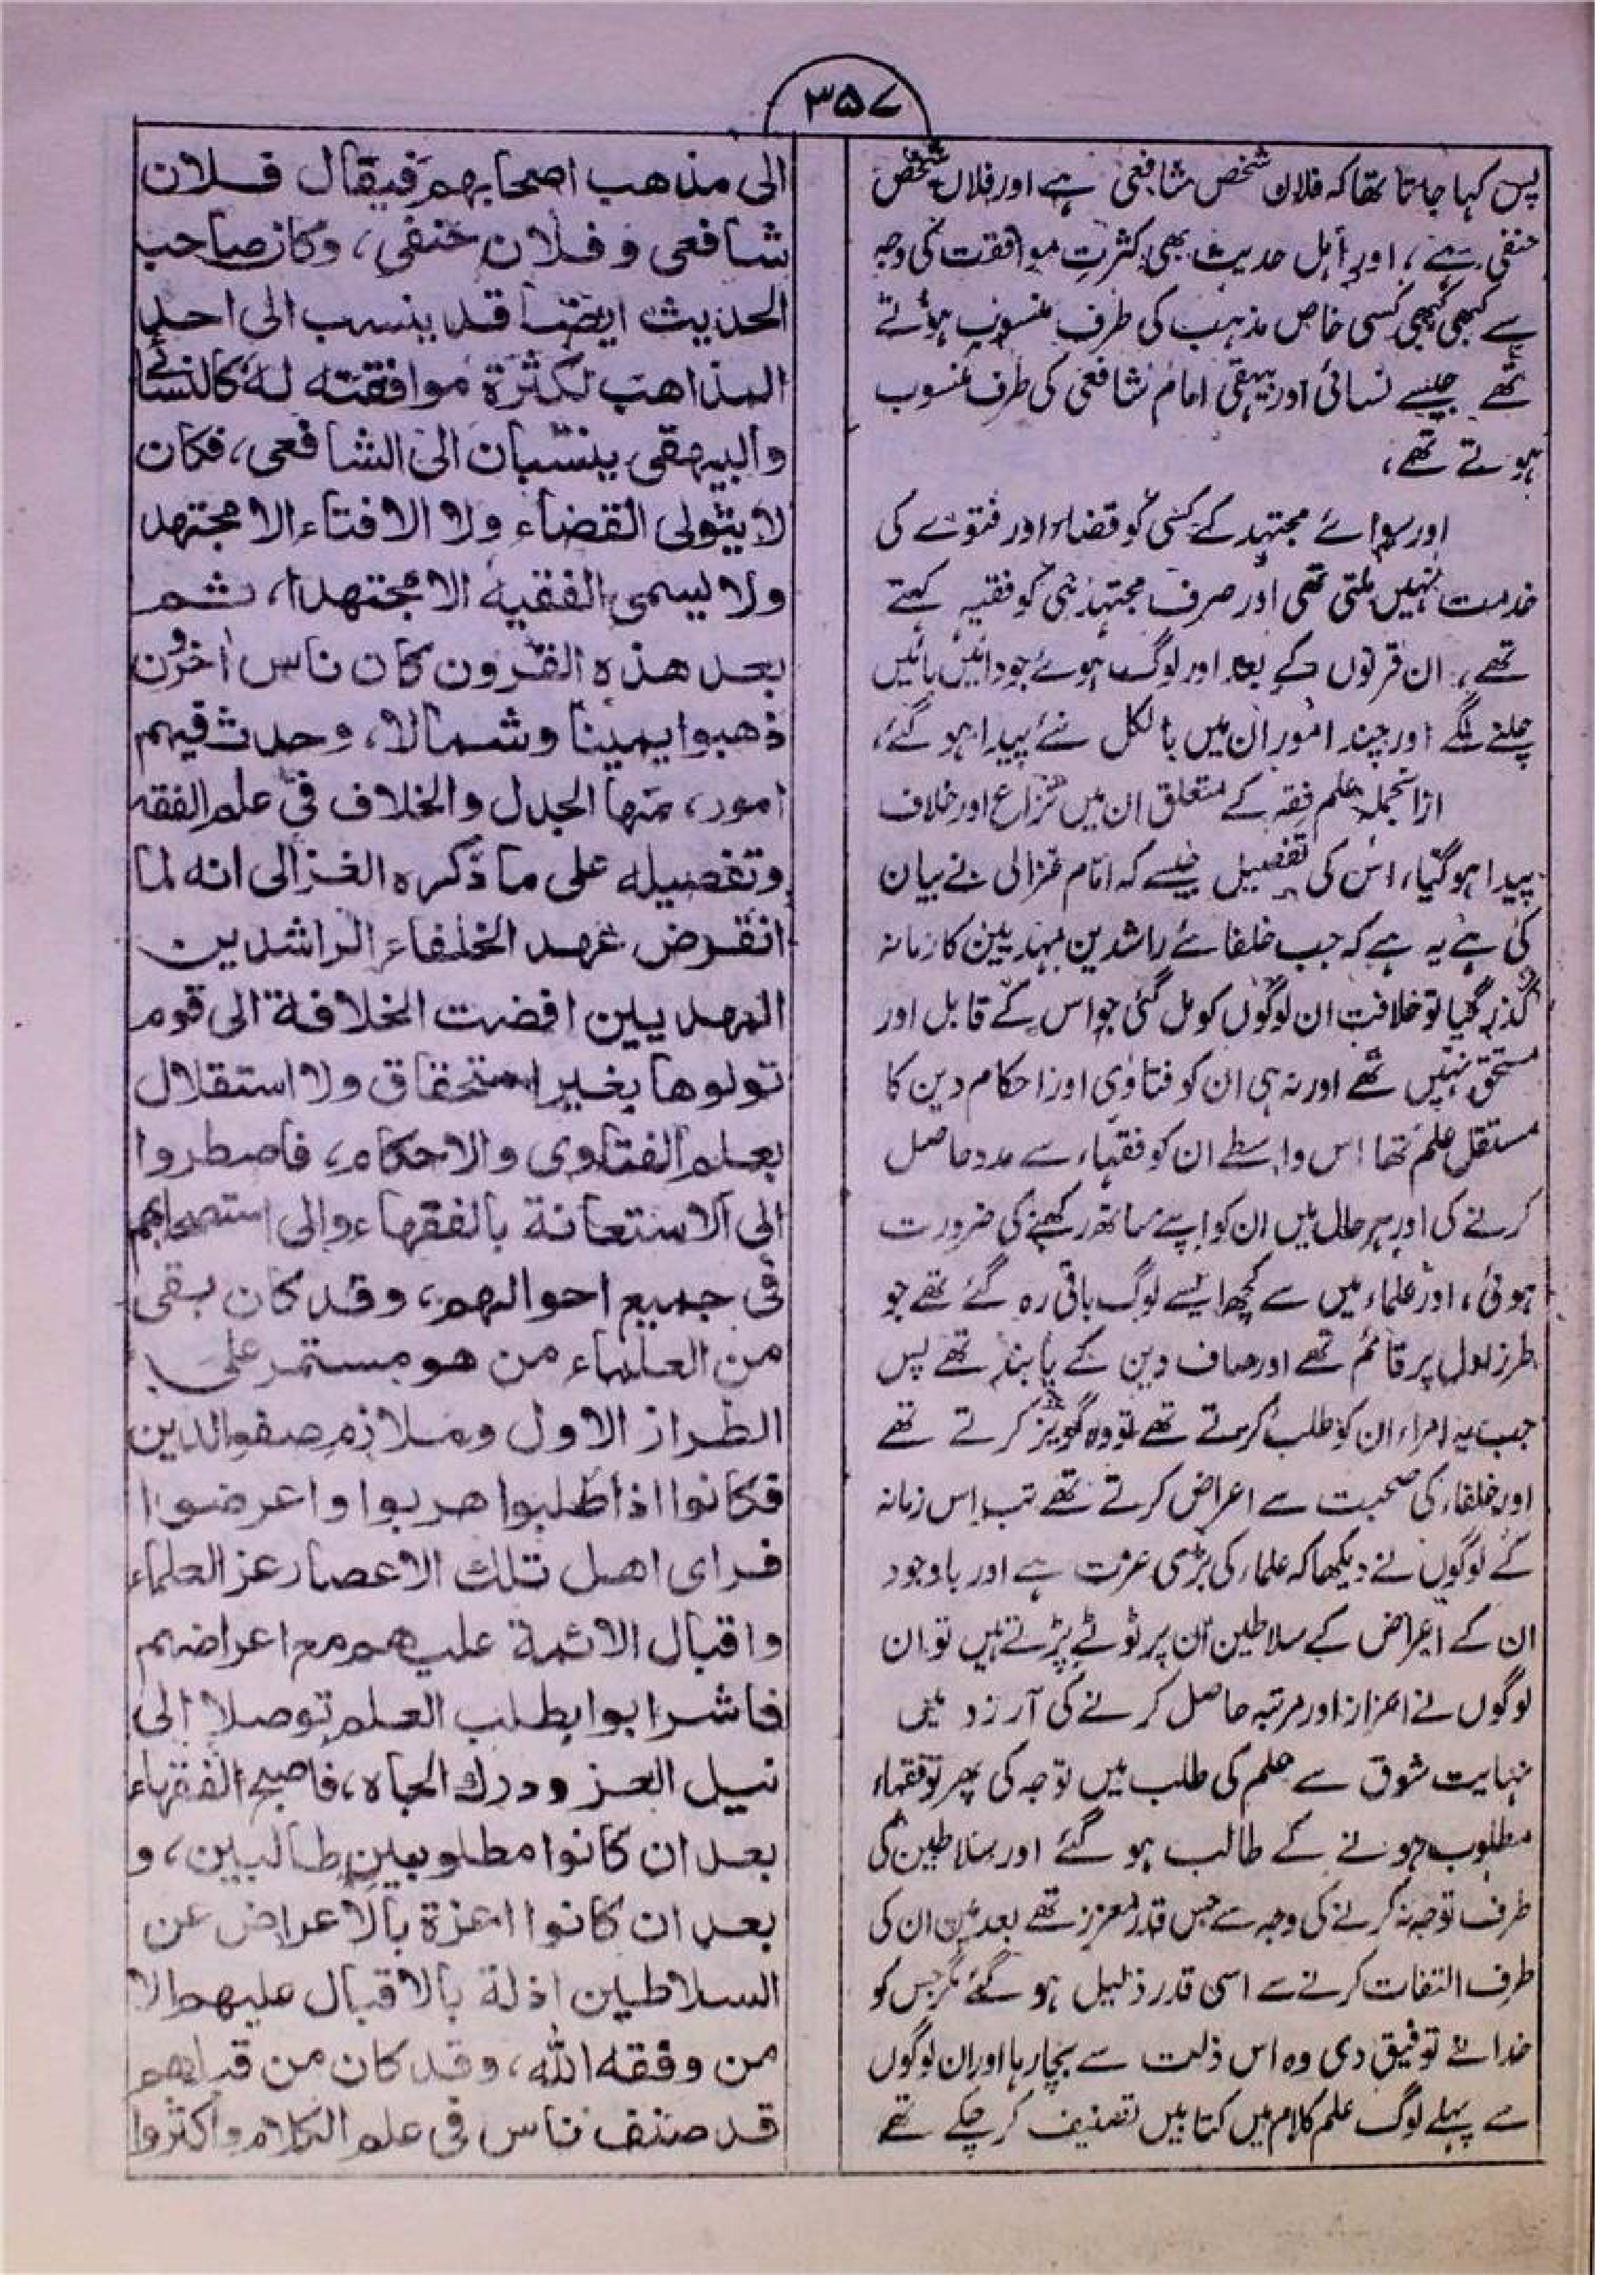 ۳۵۷
پس کہا جاتا تھا کہ فلاں شخص شافعی ہے اور فلاں شخص
حنفی ہے، اور اہل حدیث بھی کثرتِ موافقت کی وجہ
سے کبھی کبھی کسی خاص مذہب کی طرف منسوب ہوتے
تھے جیسے نسائی اور بیہقی امام شافعی کی طرف منسوب
ہوتے تھے،
اور سوائے مجتہد کے کسی کو قضاء اور فتوے کی
خدمت نہیں ملتی تھی اور صرف مجتہد ہی کو فقیہ کہتے
تھے، ان قرنوں کے بعد اور لوگ ہوئے جو دائیں بائیں
چلنے لگے اور چند امور ان میں بالکل نئے پیدا ہو گئے،
ازانجملہ علم فقہ کے متعلق ان میں نزاع اور خلاف
پیدا ہو گیا، اس کی تفصیل جیسے کہ امام غزالی نے بیان
کی ہے یہ ہے کہ جب خلفائے راشدین مہدیین کا زمانہ
گذر گیا تو خلافت ان لوگوں کو مل گئی جو اس کے قابل اور
مستحق نہیں تھے اور نہ ہی ان کو فتاوی اور احکام دین کا
مستقل علم تھا اس واسطے ان کو فقہاء سے مدد حاصل
کرنے کی اور ہر حال میں ان کو اپنے ساتھ رکھنے کی ضرورت
ہوئی، اور علماء میں سے کچھ ایسے لوگ باقی رہ گئے تھے جو
طرز اول پر قائم تھے اور صاف دین کے پابند تھے پس
جب یہ امراء ان کو طلب کرتے تھے تو وہ گریز کرتے تھے
اور خلفاء کی صحبت سے اعراض کرتے تھے تب اس زمانہ
کے لوگوں نے دیکھا کہ علماء کی بڑی عزت ہے اور باوجود
ان کے اعراض کے سلاطین ان پر ٹوٹے پڑتے ہیں تو ان
لوگوں نے اعزاز اور مرتبہ حاصل کرنے کی آرزو میں
نہایت شوق سے علم کی طلب میں توجہ کی پھر تو فقہاء
مطلوب ہونے کے طالب ہو گئے اور سلاطین کی
طرف توجہ نہ کرنے کی وجہ سے جس قدر معزز تھے بعد میں ان کی
طرف التفات کرنے سے اسی قدر ذلیل ہو گئے مگر جس کو
خدا نے توفیق دی وہ اس ذلت سے بچا رہا اور ان لوگوں
سے پہلے لوگ علم کلام میں کتابیں تصنیف کر چکے تھے
الی مذهب اصحابهم فیقال فلان
شافعی و فلان حنفی، وکان صاحب
الحدیث ایضا قد ینسب الی احد
المذاهب لکثرة موافقته له کالنسائی
والبیهقی ینسبان الی الشافعی، فکان
لا یتولی القضاء ولا الافتاء الا مجتهد
ولا یسمی الفقیه الا مجتهدا، ثم
بعد هذه القرون کان ناس اٰخرون
ذهبوا یمینا وشمالا، وحدث فیهم
امور، منها الجدل والخلاف فی علم الفقه
وتفصیله علی ما ذکره الغزالی انه لما
انقرض عهد الخلفاء الراشدین
المهدیین افضت الخلافة الی قوم
تولوها بغیر استحقاق ولا استقلال
بعلم الفتاوی والاحکام، فاضطروا
الی الاستعانة بالفقهاء والی استصحابهم
فی جمیع احوالهم، وقد کان بقی
من العلماء من هو مستمر علی
الطراز الاول وملازم صفو الدین
فکانوا اذا طلبوا هربوا واعرضوا
فرای اهل تلک الاعصار عز العلماء
واقبال الائمة علیهم مع اعراضهم
فاشرابوا بطلب العلم توصلا الی
نیل العز ودرک الجاه، فاصبح الفقهاء
بعد ان کانوا مطلوبین طالبین، و
بعد ان کانوا اعزة بالاعراض عن
السلاطین اذلة بالاقبال علیهم الا
من وفقه الله، وقد کان من قبلهم
قد صنف ناس فی علم الکلام واکثروا